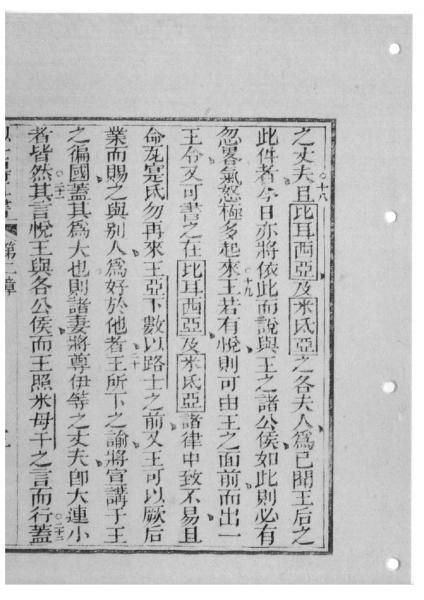 之丈夫且比耳西亞及米氐亞之各夫人爲已聞王后之
此件者今日亦將依此而說與王之諸公侯如此則必有
忽畧氣怒極多起來王若有悅則可由王之面前而出一
王令又可書之在比耳西亞及米氐亞諸律中致不易且
命瓦寔氏勿再來王亞下數以路士之前又王可以厥后
業而賜之與別人爲好於他者王所下之諭將宣講于王
之徧國蓋其爲大也則諸妻將尊伊等之丈夫卽大連小
者皆然其言悅王與各公侯而王照米母干之言而行蓋
第二章
○十八
○十九
二十
○二十一